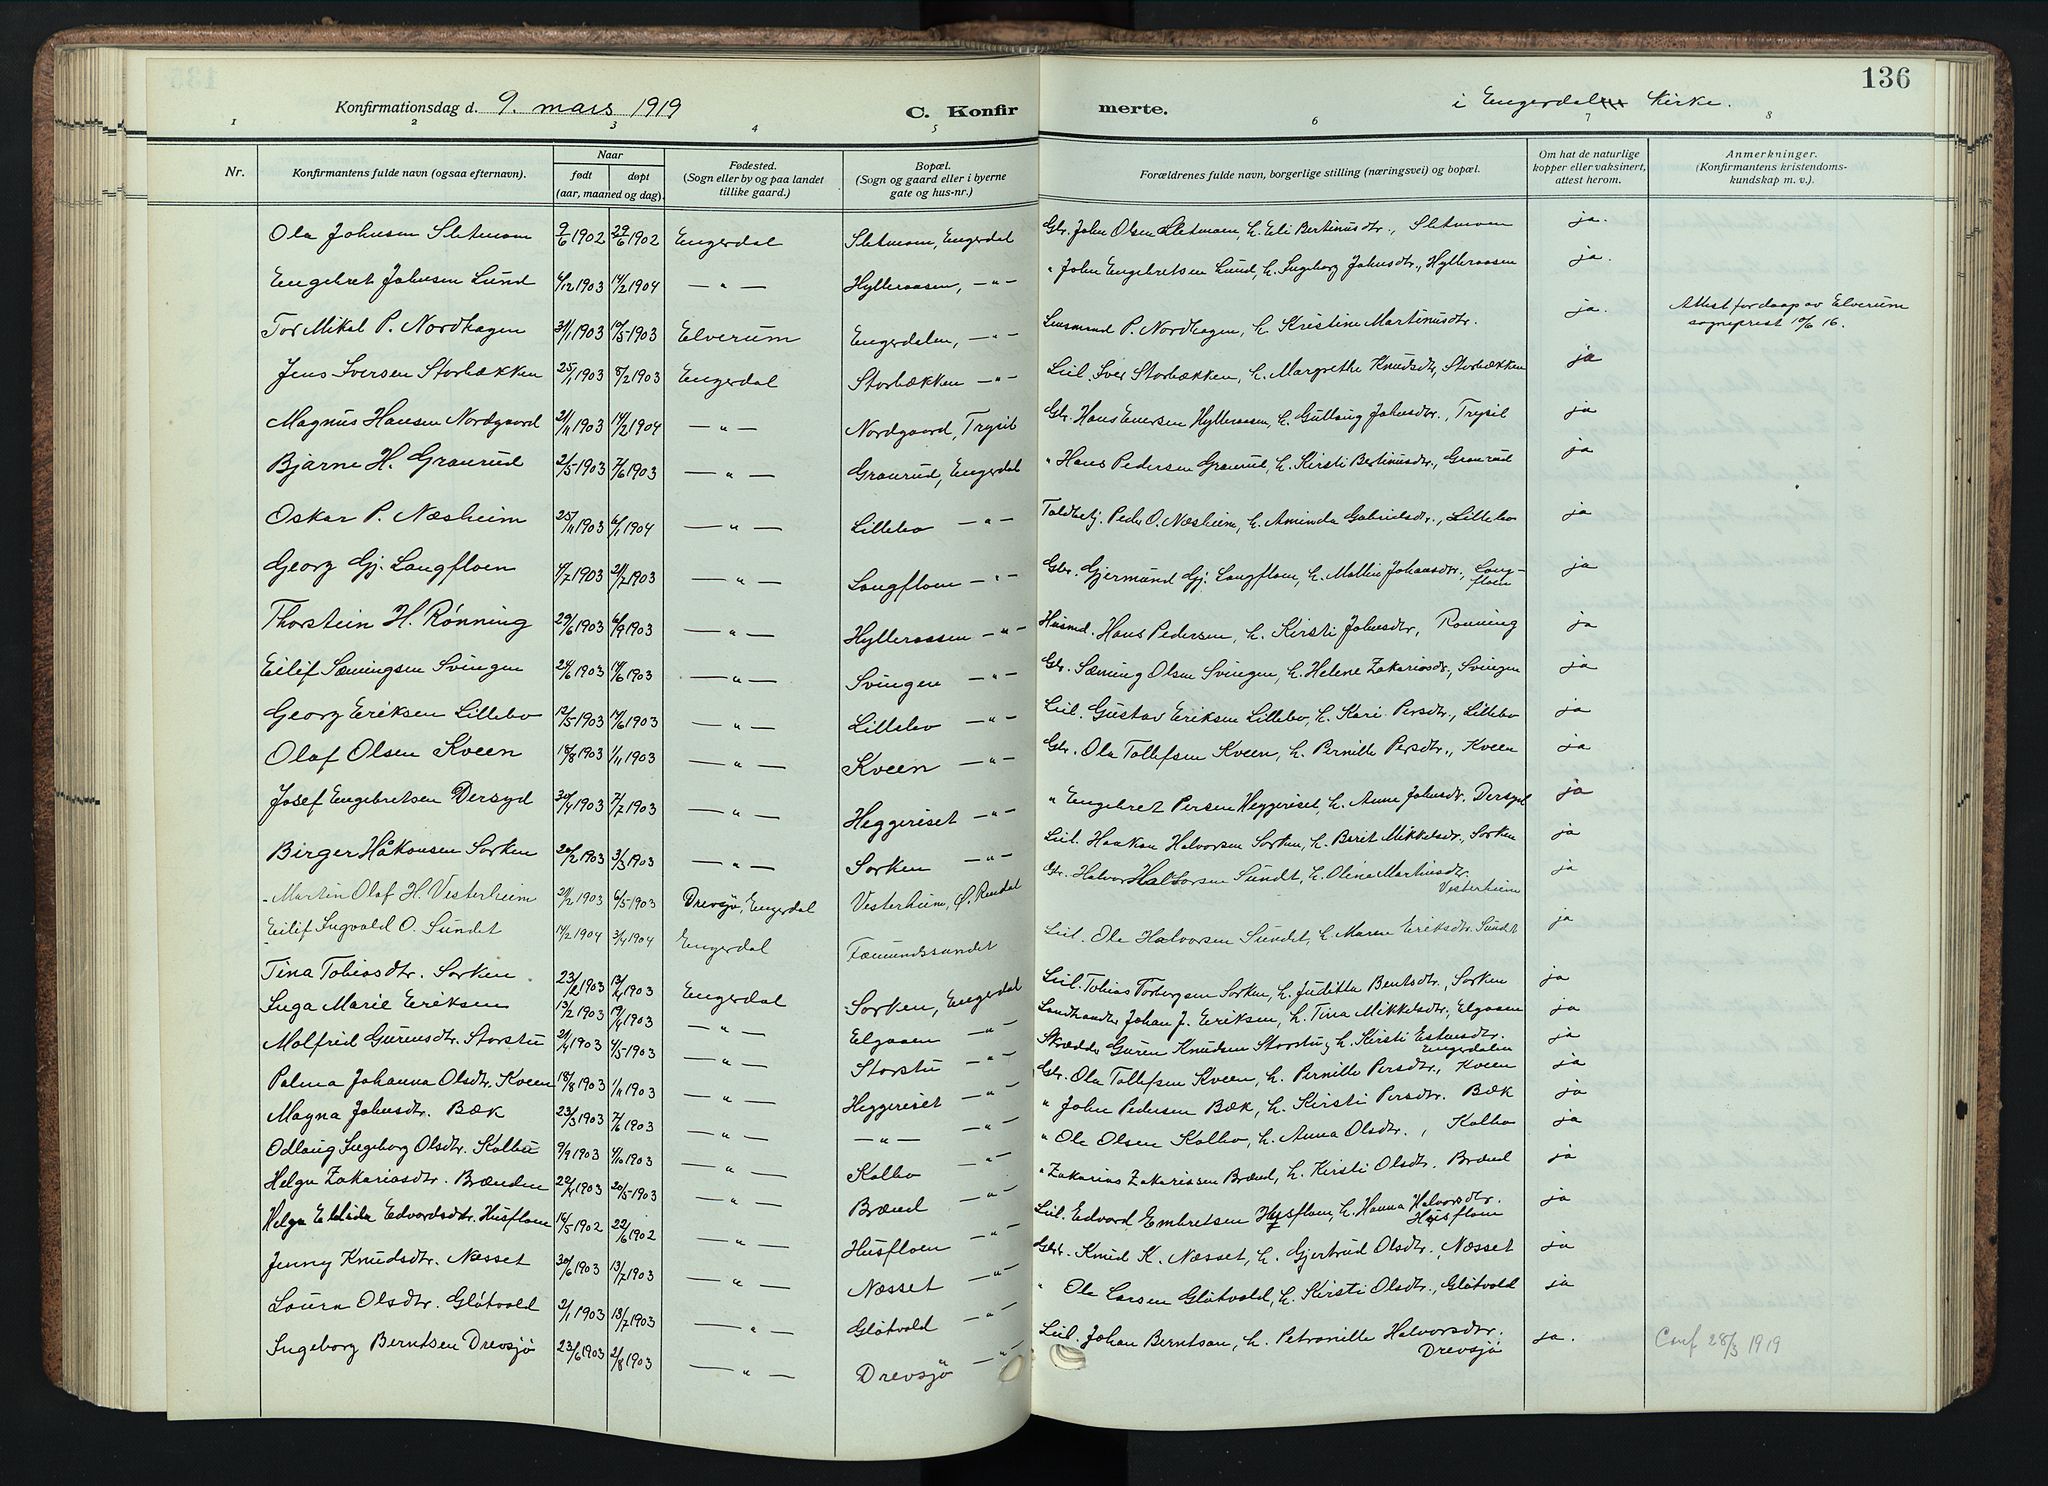 136
Konfirmationsdag d. 9. mars 1919 C. Konfirmerte. i Engerdal Kirke.
1 2 3 4 5 6 7 8
Nr. | Konfirmantens fulde navn (ogsaa efternavn). | Naar født døpt (aar, maaned og dag). | Fødested. (Sogn eller by og paa landet tillike gaard.) | Bopæl. (Sogn og gaard eller i byerne gate og hus-nr.) | Forældrenes fulde navn, borgerlige stilling (næringsvei) og bopæl. | Om hat de naturlige kopper eller vaksinert, attest herom. | Anmerkninger. (Konfirmantens kristendomskundskap m. v.).
Ola Johnsen Sletmoen 9/6 1902 29/6 1902 Engerdal Sletmoen, Engerdal Gbr. John Olsen Sletmoen, h. Eli Bertinusdtr., Sletmoen ja.
Engebret Johnsen Lund 6/12 1903 14/2 1904 — " — Hylleraasen, — " — " John Engebretsen Lund, h. Ingeborg Johnsdtr., Hylleraasen ja.
Tor Mikal P. Nordhagen 31/1 1903 10/5 1903 Elverum Engerdalen, — " — Lensmand P. Nordhagen, h. Kristine Martinusdtr. ja. Attest for daap av Elverum sogneprest 10/6 16.
Jens Iversen Storbækken 25/1 1903 8/2 1903 Engerdal Storbækken — " — Leil. Iver Storbækken, h. Margrethe Knudsdtr., Storbækken ja
Magnus Hansen Nordgaard 21/11 1903 14/2 1904 — " — Nordgaard, Trysil Gbr. Hans Enersen Hylleraasen, h. Gullaug Johnsdtr., Trysil ja
Bjarne H. Granrud 2/5 1903 7/6 1903 — " — Granrud, Engerdal " Hans Pedersen Granrud, h. Kirsti Bertinusdtr., Granrud ja
Oskar P. Næsheim 25/11 1903 6/1 1904 — " — Lillebo — " — Toldbetj. Peder O. Næsheim, h. Aminda Gabrielsdtr., Lillebo ja
Georg Gj. Langfloen 4/7 1903 21/7 1903 — " — Langfloen — " — Gbr. Gjermund Gj. Langfloen, h. Mallin Johansdtr., Langfloen ja
Thorstein H. Rønning 29/6 1903 6/9 1903 — " — Hylleraasen — " — Husmd. Hans Pedersen, h. Kirsti Johnsdtr., Rønning ja
Eilif Sæmingsen Svingen 24/6 1903 14/6 1903 — " — Svingen — " — Gbr. Sæming Olsen Svingen, h. Helene Zakariasdtr., Svingen ja
Georg Eriksen Lillebo 12/5 1903 14/6 1903 — " — Lillebo — " — Leil. Gustav Eriksen Lillebo, h. Kari Persdtr., Lillebo ja
Olaf Olsen Kveen 18/8 1903 1/11 1903 — " — Kveen — " — Gbr. Ola Tollefsen Kveen, h. Pernille Persdtr., Kveen ja
Josef Engebretsen Dersyd 30/4 1903 7/7 1903 — " — Heggeriset — " — " Engebret Persen Heggeriset, h. Anne Johnsdtr. Dersyd ja
Birger Håkonsen Sorken 20/2 1903 3/3 1903 — " — Sorken — " — Leil. Haakon Halvorsen Sorken, h. Berit Mikkelsdtr., Sorken ja
Martin Olaf H. Vesterheim 21/2 1903 6/5 1903 Drevsjø, Engerdal Vesterheim, Ø. Rendal Gbr. Halvor Halvorsen Sundt, h. Olina Martinsdtr. Vesterheim ja
Eilif Ingvald O. Sundet 17/2 1904 3/4 1904 Engerdal Fæmundssundet Leil. Ole Halvorsen Sundet, h. Maren Eriksdtr. Sundet ja
Tina Tobiasdtr. Sorken 23/2 1903 13/4 1903 Engerdal Sorken, Engerdal Leil. Tobias Torbergsen Sorken, h. Juditta Bentsdtr., Sorken ja
Inga Marie Eriksen 13/2 1903 19/4 1903 — " — Elgaaen — " — Landhandler Johan J. Eriksen, h. Tina Mikkelsdtr., Elgaaen ja
Malfred Gurensdtr. Storstu 21/4 1903 4/5 1903 — " — Storstu — " — Skrædder Guren Knudsen Storstu, h. Kirsti Estensdtr. Engerdalen ja
Palma Johanna Olsdtr. Kveen 18/8 1903 1/11 1903 — " — Heggeriset — " — Gbr. Ola Tollefsen Kveen, h. Pernille Persdtr., Kveen ja
Magna Johnsdtr. Bæk 23/3 1903 7/6 1903 — " — — " — — " — " John Pedersen Bæk, h. Kirsti Persdtr. Bæk ja
Odlaug Ingeborg Olsdtr. Kolbu 9/9 1903 4/10 1903 — " — Kolbo — " — " Ole Olsen Kolbo, h. Anna Olsdtr., Kolbo ja
Helga Zakariasdtr. Brænden 22/4 1903 20/5 1903 — " — Brænd — " — " Zakarias Zakariasen Brænd, h. Kirsti Olsdtr. Brænd ja
Helga Elida Edvardsdtr. Husfloen 16/5 1902 22/6 1902 — " — Husfloen — " — Leil. Edvard Embretsen Husfloen, h. Hanna Halvorsdtr. Husfloen ja
Jenny Knudsdtr. Næsset 30/6 1903 13/7 1903 — " — Næsset — " — Gbr. Knud K. Næsset, h. Gjertrud Olsdtr., Næsset ja
Laura Olsdtr. Gløtvold 2/1 1903 13/7 1903 — " — Gløtvold — " — " Ole Larsen Gløtvold, h. Kirsti Olsdtr., Gløtvold ja
Ingeborg Berntsen Drevsjø 23/6 1903 2/8 1903 — " — Drevsjø — " — Leil. Johan Berntsen, h. Petronille Halvorsdtr. Drevsjø ja. Conf 28/3 1919